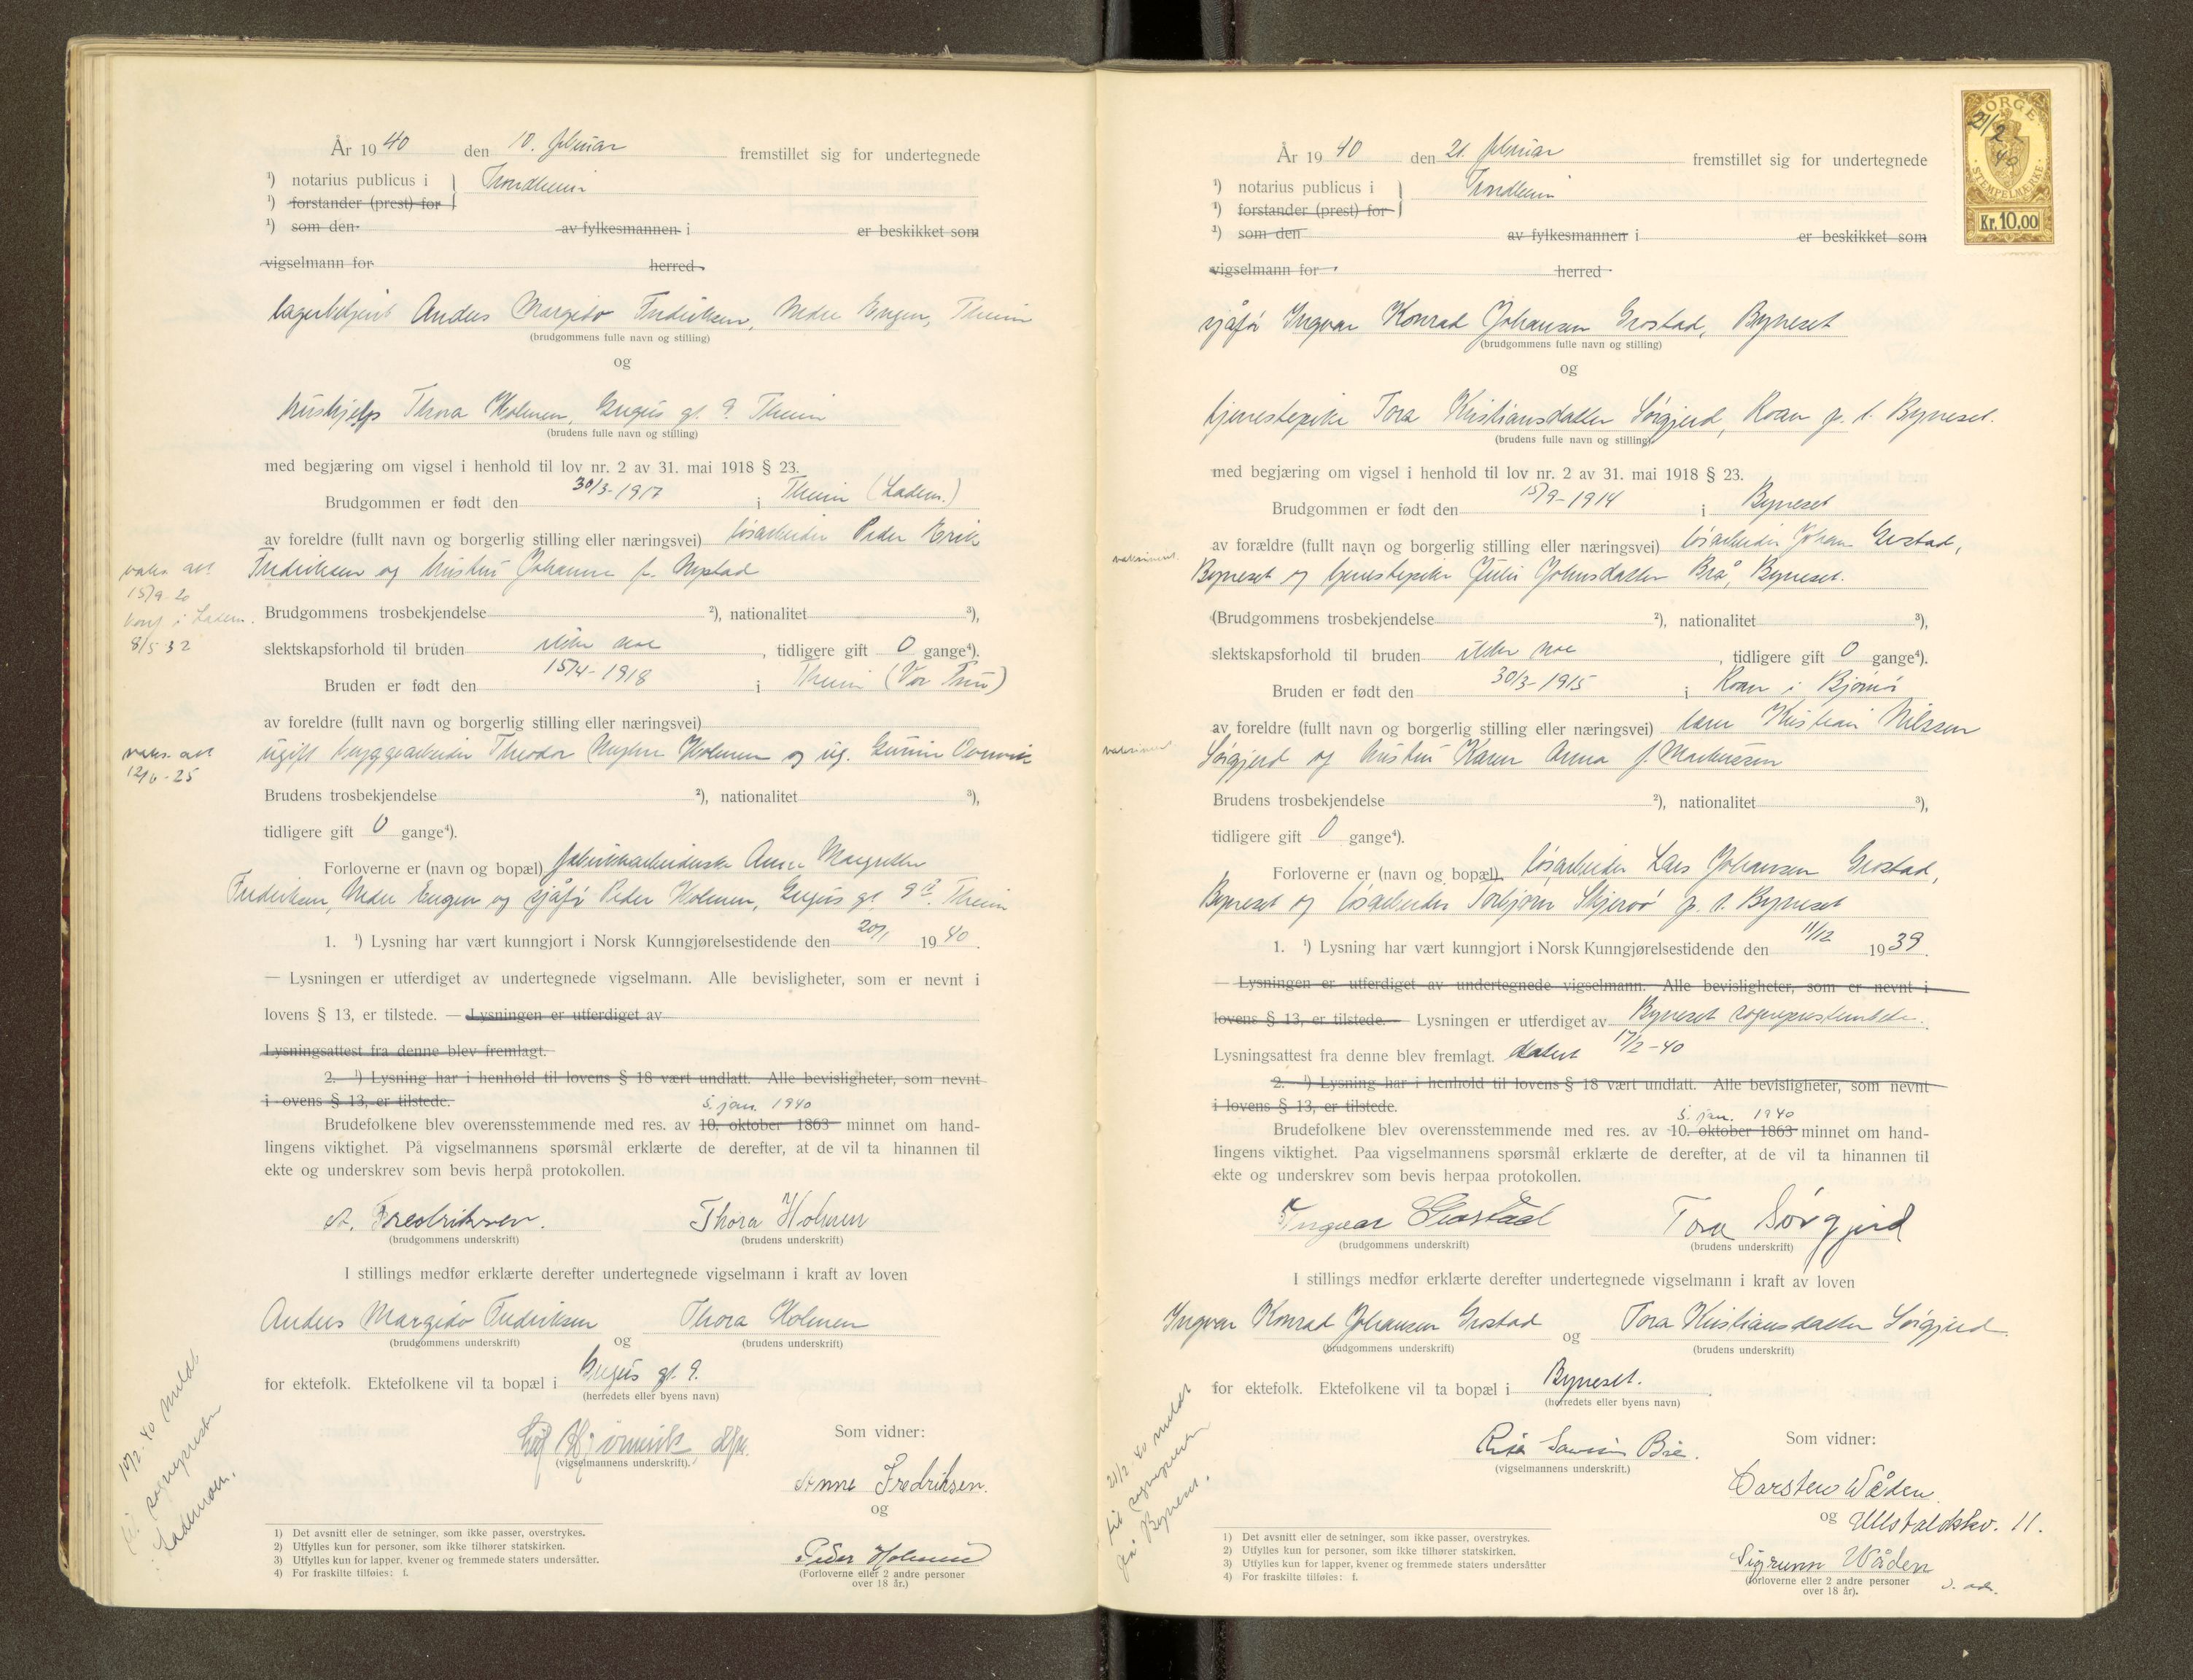 År 1940 den 10. februar fremstillet sig for undertegnede
¹) notarius publicus i } Trondheim
¹) forstander (prest) for
¹) som den av fylkesmannen i er beskikket som
vigselmann for herred.
lagerbetjent Anders Margido Fredriksen, Nedre Engen, Theim
(brudgommens fulle navn og stilling)
og
hushjelp Thora Holmen, gt. 9. Theim
(brudens fulle navn og stilling)
med begjæring om vigsel i henhold til lov nr. 2 av 31. mai 1918 § 23.
Brudgommen er født den 30/3-1917 i Theim (Ladem.)
av foreldre (fullt navn og borgerlig stilling eller næringsvei) løsarbeider Peder Erik
Fredriksen og hustru Johanne f. Nystad
vaks. att
15/9-20
konf. i Ladem.
8/5 32
Brudgommens trosbekjendelse ²), nationalitet ³),
slektskapsforhold til bruden ikke noe, tidligere gift 0 gange⁴).
Bruden er født den 15/4-1918 i Theim (Vor Frue)
av foreldre (fullt navn og borgerlig stilling eller næringsvei)
ugift bryggearbeider Theodor Holmen og ug.
vaks. att
12/6-25
Brudens trosbekjendelse ²), nationalitet ³),
tidligere gift 0 gange⁴).
Forloverne er (navn og bopæl) fabrikkarbeiderske Anne Margrethe
Fredriksen, Nedre Engen og sjåfør Peder Holmen, gt. 9 Theim
1. ¹) Lysning har vært kunngjort i Norsk Kunngjørelsestidende den 20/1 1940.
— Lysningen er utferdiget av undertegnede vigselmann. Alle bevisligheter, som er nevnt i
lovens § 13, er tilstede. — Lysningen er utferdiget av
Lysningsattest fra denne blev fremlagt.
2. ¹) Lysning har i henhold til lovens § 18 vært undlatt. Alle bevisligheter, som nevnt
i ovens § 13, er tilstede.
5. jan. 1940
Brudefolkene blev overensstemmende med res. av 10. oktober 1863 minnet om hand-
lingens viktighet. På vigselmannens spørsmål erklærte de derefter, at de vil ta hinannen til
ekte og underskrev som bevis herpå protokollen.
A. Fredriksen. Thora Holmen
(brudgommens underskrift) (brudens underskrift)
I stillings medfør erklærte derefter undertegnede vigselmann i kraft av loven
Anders Margido Fredriksen og Thora Holmen
(brudgommens underskrift) (brudens underskrift)
for ektefolk. Ektefolkene vil ta bopæl i gt. 9.
(herredets eller byens navn)
(vigselmannens underskrift).
Som vidner:
Anne Fredriksen.
og
Peder Holmen
(Forloverne eller 2 andre personer
over 18 år.)
10/2-40 meldt
til sogneprester
Lademoen.
1) Det avsnitt eller de setninger, som ikke passer, overstrykes.
2) Utfylles kun for personer, som ikke tilhører statskirken.
3) Utfylles kun for lapper, kvener og fremmede staters undersåtter.
4) For fraskilte tilføies: f.
NORGE
21/2
40
STEMPELMERKE
Kr. 10,00
År 1940 den 21. februar fremstillet sig for undertegnede
¹) notarius publicus i } Trondheim
¹) forstander (prest) for
¹) som den av fylkesmannen i er beskikket som
vigselmann for herred
sjåfør Ingvar Konrad Johansen Grostad, Byneset
(brudgommens fulle navn og stilling)
og
tjenestepike Tora Kristiansdatter Sørgjerd, Roan p. t. Byneset.
(brudens fulle navn og stilling)
med begjæring om vigsel i henhold til lov nr. 2 av 31. mai 1918 § 23.
Brudgommen er født den 15/9-1914 i Byneset
av forældre (fullt navn og borgerlig stilling eller næringsvei) løsarbeider Johan Grostad,
vaksinert.
Byneset og tjenestepike Julie Johnsdatter Brå, Byneset.
(Brudgommens trosbekjendelse ²), nationalitet ³),
slektskapsforhold til bruden ikke noe, tidligere gift 0 gange⁴).
Bruden er født den 30/3-1915 i Roan i Bjørnør
av foreldre (fullt navn og borgerlig stilling eller næringsvei) Kristian Nilssen
vaksinert
Sørgjerd og hustru Karen Anna f. Markussen
Brudens trosbekjendelse ²), nationalitet ³),
tidligere gift 0 gange⁴).
Forloverne er (navn og bopæl) løsarbeider Lars Johansen Grostad,
Byneset og løsarbeider Torbjørn Skjervø p. t. Byneset
1. ¹) Lysning har vært kunngjort i Norsk Kunngjørelsestidende den 11/12 1939.
— Lysningen er utferdiget av undertegnede vigselmann. Alle bevisligheter, som er nevnt i
lovens § 13, er tilstede. — Lysningen er utferdiget av Byneset sogneprestembete.
Lysningsattest fra denne blev fremlagt. datert 17/2-40
2. ¹) Lysning har i henhold til lovens § 18 vært undlatt. Alle bevisligheter, som nevnt
i lovens § 13, er tilstede.
5. jan. 1940
Brudefolkene blev overensstemmende med res. av 10. oktober 1863 minnet om hand-
lingens viktighet. Paa vigselmannens spørsmål erklærte de derefter, at de vil ta hinannen til
ekte og underskrev som bevis herpaa protokollen.
Ingvar Grostad Tora Sørgjerd
(brudgommens underskrift) (brudens underskrift)
I stillings medfør erklærte derefter undertegnede vigselmann i kraft av loven
Ingvar Konrad Johansen Grostad og Tora Kristiansdatter Sørgjerd.
(brudgommens underskrift) (brudens underskrift)
for ektefolk. Ektefolkene vil ta bopæl i Byneset.
(herredets eller byens navn)
(vigselmannens underskrift.)
Som vidner:
Carsten Wåden.
og Ullstadløkkv. 11.
Sigrunn Wåden
(forloverne eller 2 andre personer
over 18 år).
21/2-40 meldt
til sognepresten
på Byneset.
1) Det avsnitt eller de setninger, som ikke passer, overstrykes.
2) Utfylles kun for personer, som ikke tilhører statskirken.
3) Utfylles kun for lapper, kvener og fremmede staters undersåtter
4) For fraskilte tilføies: f.